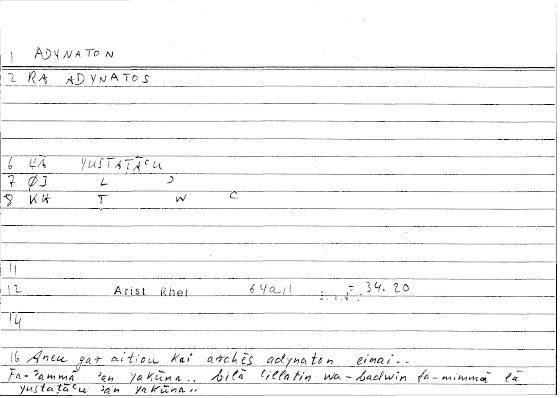 1 ADYNATON
2 RA ADYNATOS
6 LĀ YUSTAṬĀʿU
7 ØJ L ʾ
8 KK T W C
11
12 Arist Rhet 64a11 34.20
14
16 Aneu gar aitiou kai archēs adynaton einai..
Fa-ʾammā ʾan yakūna.. bilā ʿillatin wa-badwin fa-mimmā lā
yustaṭāʿu ʾan yakūna..